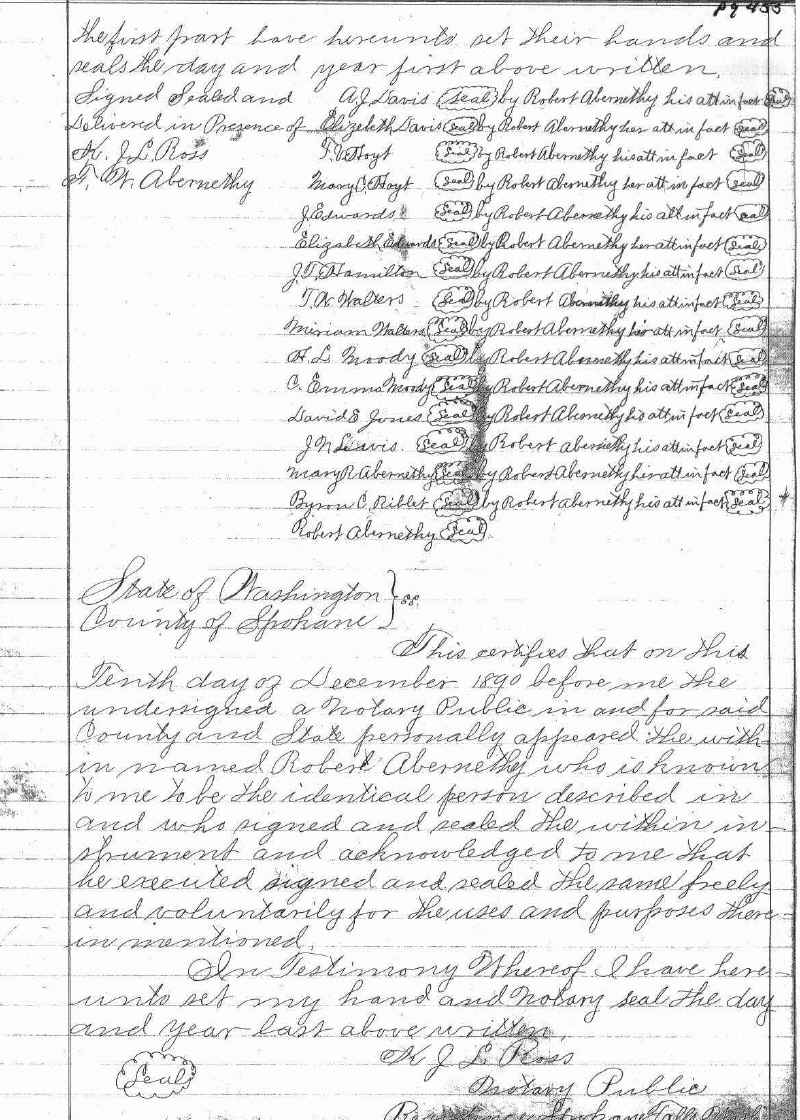 pg 455
the first part have hereunto set their hands and
seals the day and year first above written.
Signed Sealed and A J Davis (Seal) by Robert Abernethy his att in fact (Seal)
Delivered in Presence of Elizabeth Davis (Seal) by Robert Abernethy her att in fact (Seal)
K. J L Ross T. V. Hoyt (Seal) by Robert Abernethy his att in fact (Seal)
T. W. Abernethy Mary C. Hoyt (Seal) by Robert Abernethy her att in fact (Seal)
J. Edwards (Seal) by Robert Abernethy his att in fact (Seal)
Elizabeth Edwards (Seal) by Robert Abernethy her att in fact (Seal)
J. T. Hamilton (Seal) by Robert Abernethy his att in fact (Seal)
T. K. Walters (Seal) by Robert Abernethy his att in fact (Seal)
Miriam Walters (Seal) by Robert Abernethy her att in fact (Seal)
H. L. Moody (Seal) by Robert Abernethy his att in fact (Seal)
C. Emma Moody (Seal) by Robert Abernethy his att in fact (Seal)
David E Jones (Seal) by Robert Abernethy his att in fact (Seal)
J N (Seal) by Robert Abernethy his att in fact (Seal)
Mary R Abernethy (Seal) by Robert Abernethy his att in fact (Seal)
Byron C. Riblet (Seal) by Robert Abernethy his att in fact (Seal)
Robert Abernethy (Seal)
State of Washington } ss.
County of Spokane
This certifies that on this
Tenth day of December 1890 before me the
undersigned a Notary Public in and for said
County and State personally appeared the with-
in named Robert Abernethy who is known
to me to be the identical person described in
and who signed and sealed the within in-
strument and acknowledged to me that
he executed signed and sealed the same freely
and voluntarily for the uses and purposes there-
in mentioned.
In Testimony Whereof I have here-
unto set my hand and Notary seal the day
and year last above written.
K J L Ross
(Seal) Notary Public
Spokane Falls